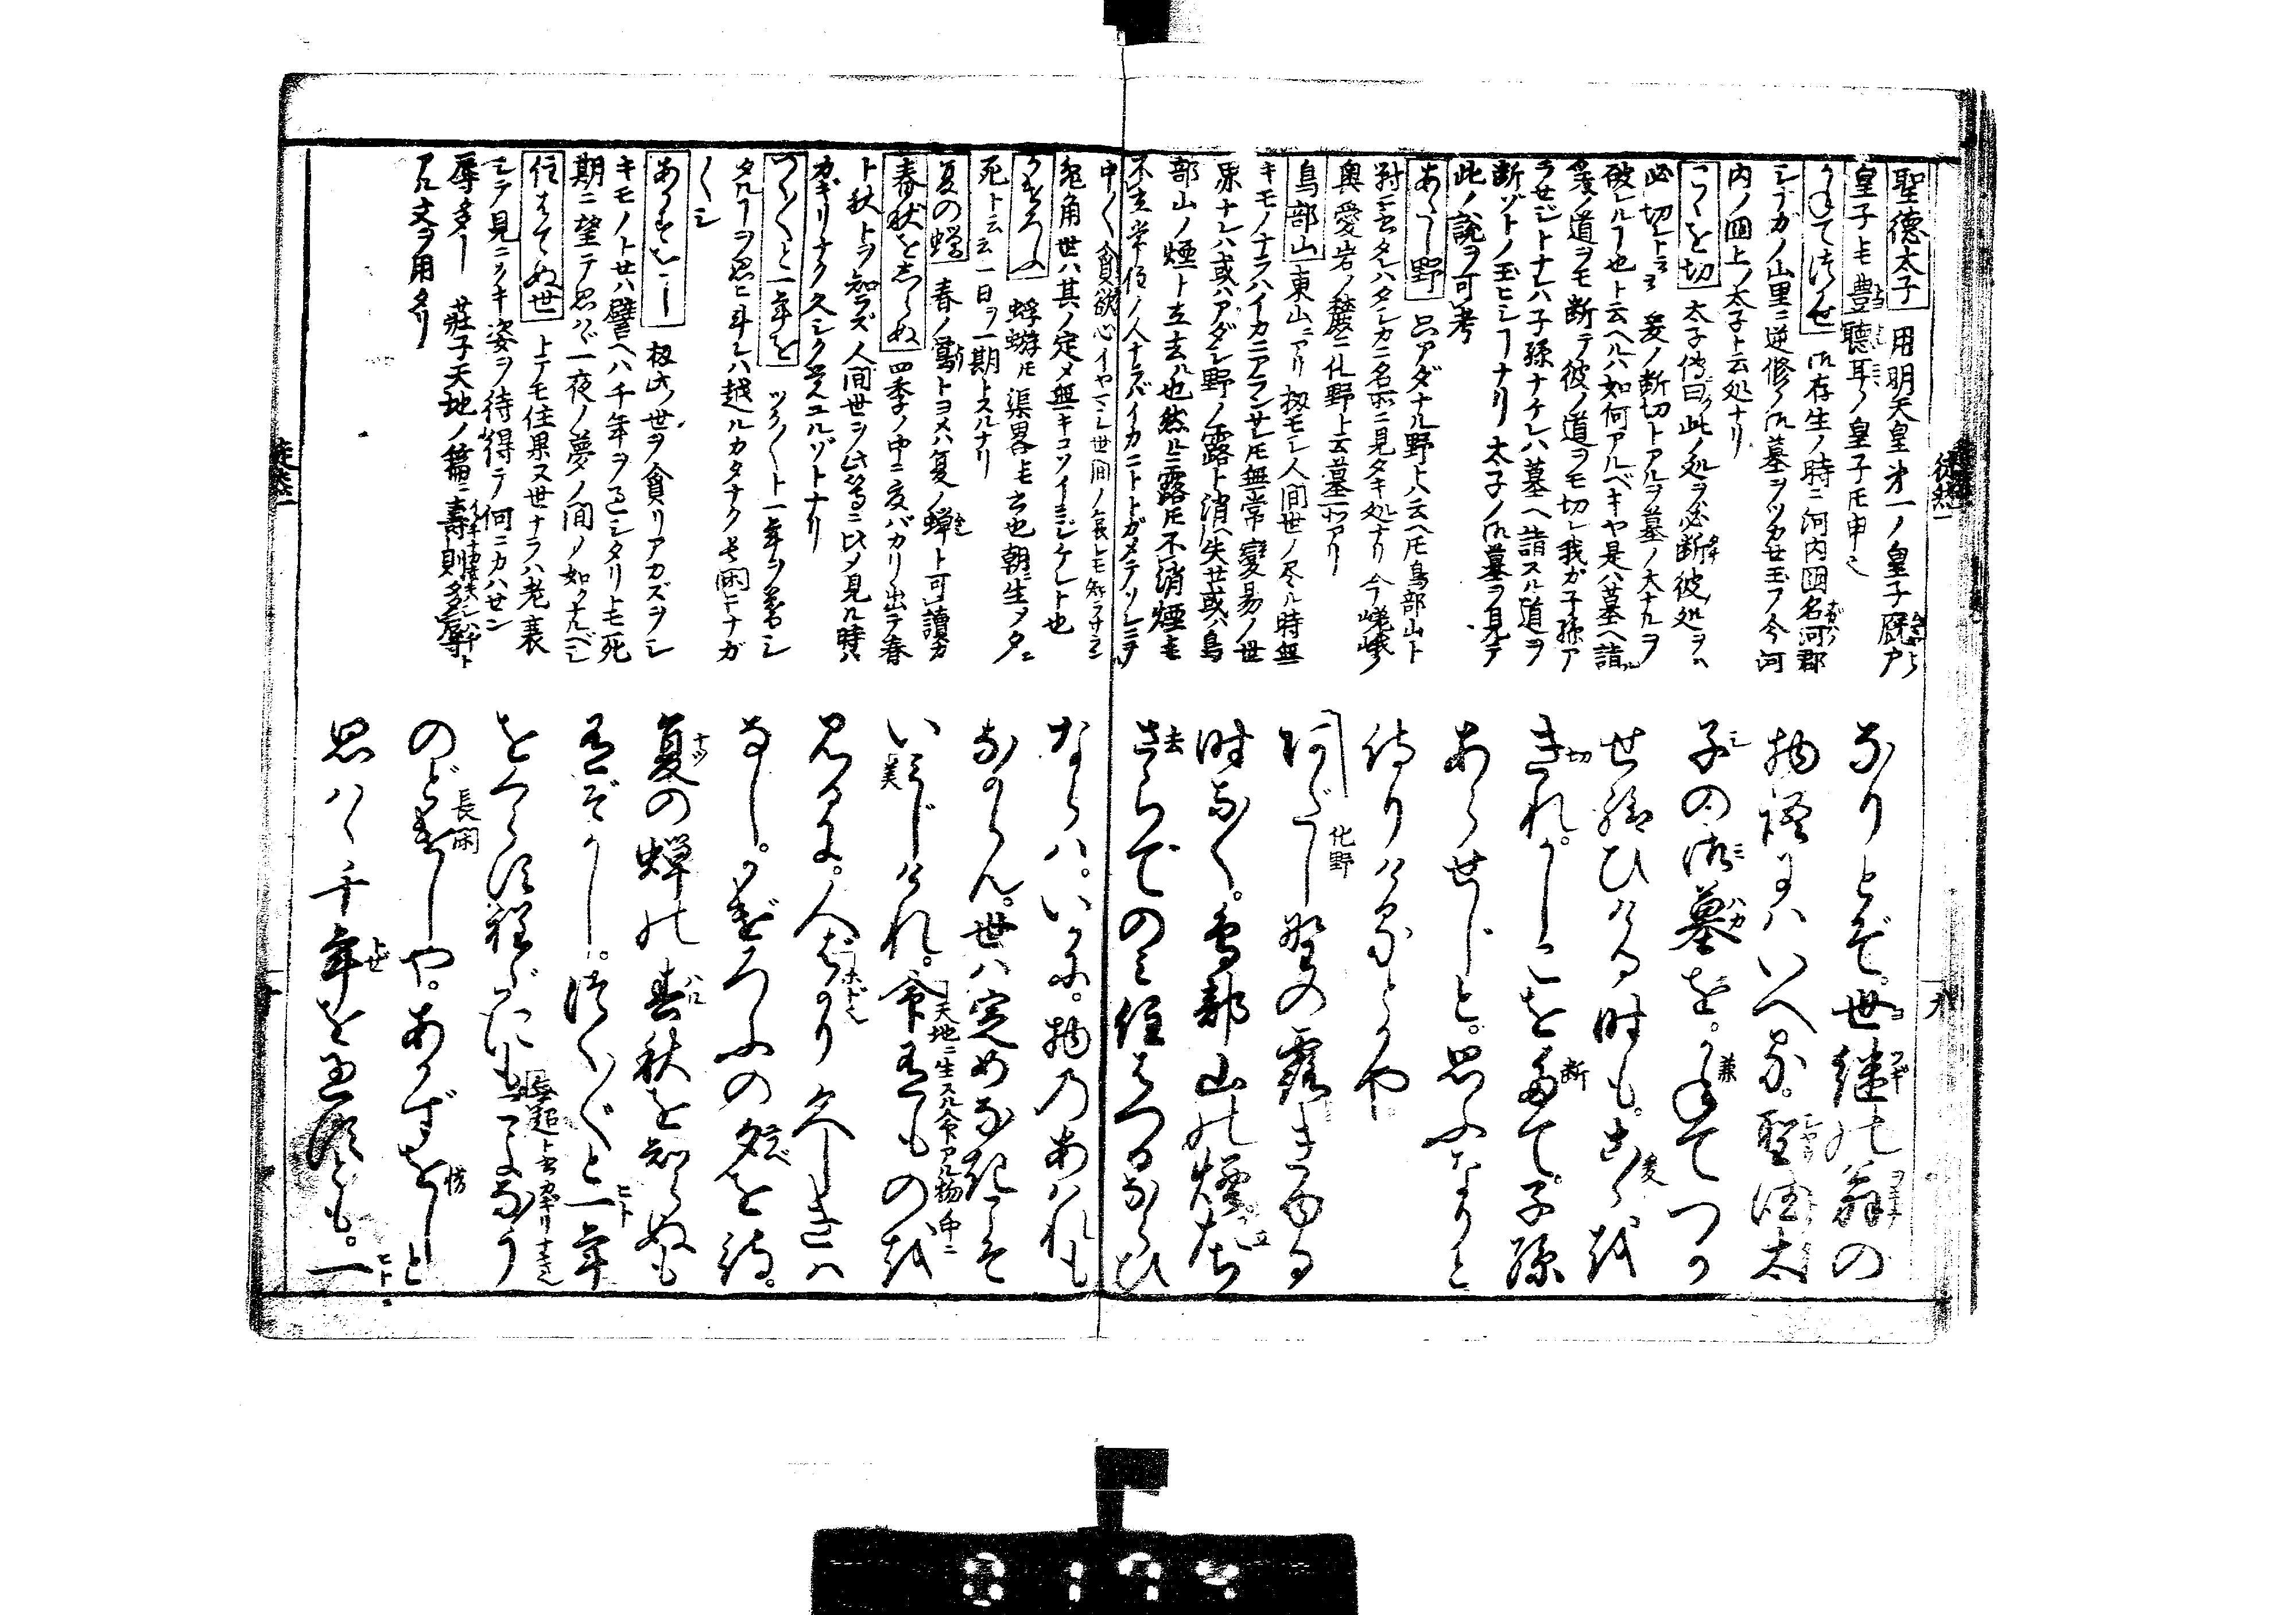 聖徳太子 用明天皇才一ノ皇子厩戸
皇子トモ豊聴耳ノ皇子トモ申也
かねてつかせ 御存生ノ時ニ河内国名河郡
シナガノ山里ニ逆修ノ御墓ヲツカせ玉フ今河
内ノ国上ノ太子ト云処ナリ
こゝを切 太子傳曰此ノ処ヲ必断彼処ヲハ
必切トヲヨ 爰ノ断切トアルヲ墓ノ大ナルヲ
破レルヿ也ト云ヘルハ如何アルベキヤ是ハ墓ヘ詣
爰ノ道ヲモ断テ彼ノ道ヲモ切レ我ガ子孫ア
ラせジトナレハ子孫ナケレハ墓ヘ詣スル道ヲ
断ゾトノ玉ヒシヿナリ 太子ノ御墓ヲ見テ
此ノ説ヲ可考
あだし野 只アダナル野トハ云ヘ𪜈鳥部山ト
對シ玄タレハタシカニ名所ニ見タキ処ナリ 今嵯峨ノ
奥愛岩ノ麓ニ化野ト云墓所アリ
鳥部山 東山ニアリ 扨モシ人間世ノ尽ル時無
キモノナラハイカニアランサレ𪜈無常變易ノ世
界ナレハ或ハアダシ野ノ露ト消ヘ失せ或ハ鳥
部山ノ煙ト立去ル也然レ𪜈露𪜈不消煙モ
不立常住ノ人ナラバイカニトトガメテソレヨリ
中〱貪欲心イヤマシ世間ノ哀レモ知ラサラン
兎角世ハ其ノ定メ無キコソイミジケレト也
かげろふの 蜉蝣𪜈渠畧トモ云也朝ニ生ヲタニ
死ト云云一日ヲ一期トスルナリ
夏の蝉 春ノ鳥トヨメハ夏ノ蝉ト可讀カ
春秋をしらぬ 四季ノ中ニ夏バカリ出テ春
ト秋トヲ知ラズ人間世ヲ此等ニ比メ見ル時ハ
カギリナク久シク覚ユルゾトナリ
つく〲と一年を ツク〲ト一年ヲ暮シ
タルヿヲ思ヒ斗レハ越ルカタナク長閑ニナガ
〱シ
あかずをし 扨此世ヲ貪リアカズヲシ
キモノトせハ譬ヘハ千年ヲ過シタリトモ死
期ニ望テ思ハヾ一夜ノ夢ノ間ノ如クナルベシ
住はてぬ世 トテモ住果ヌ世ナラハ老衰
シテ見ニクキ姿ヲ待得テ何ニカハせン
辱多シ 荘子天地ノ篇ニ壽則多辱ト
アル文ヲ用タリ
なりとぞ。世継の翁の
物語にはいへる。聖徳太
子の御墓を。かねてつか
せ給ひける時も。こゝを
きれ。かしこをたて。子孫
あらせじと。思ふなりと
侍りけるとかや。
あだし野の露きゆる
時なく。鳥部山の煙たち
さらでのミ住はつるならひ
ならハ。いかに。物のあハれも
なからん。世ハ定めなきこそ
いミじけれ。命あるものを
見るに。人ばかり久しきハ
なし。かげろふの夕を待。
夏の蝉の春秋を知らぬも
あるぞかし。つく〲と一年
をくらす程だにも。こよなう
のどけしや。あかずをしと
思ハヾ千年を過すとも。一